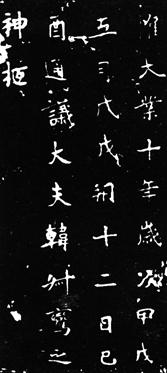 惟大業十年歲次甲戌
五月戊戌朔十二日己
酉通議大夫韓叔鸞之
神柩